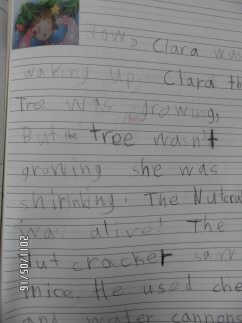 Now, Clara was
waking up. Clara th
Tree was growing,
But the tree wasn't
growing she was
shirinking. The Nutcra
was alive! The
Nut cracher saw
mice. He used che
and water cannons
2011/05/16